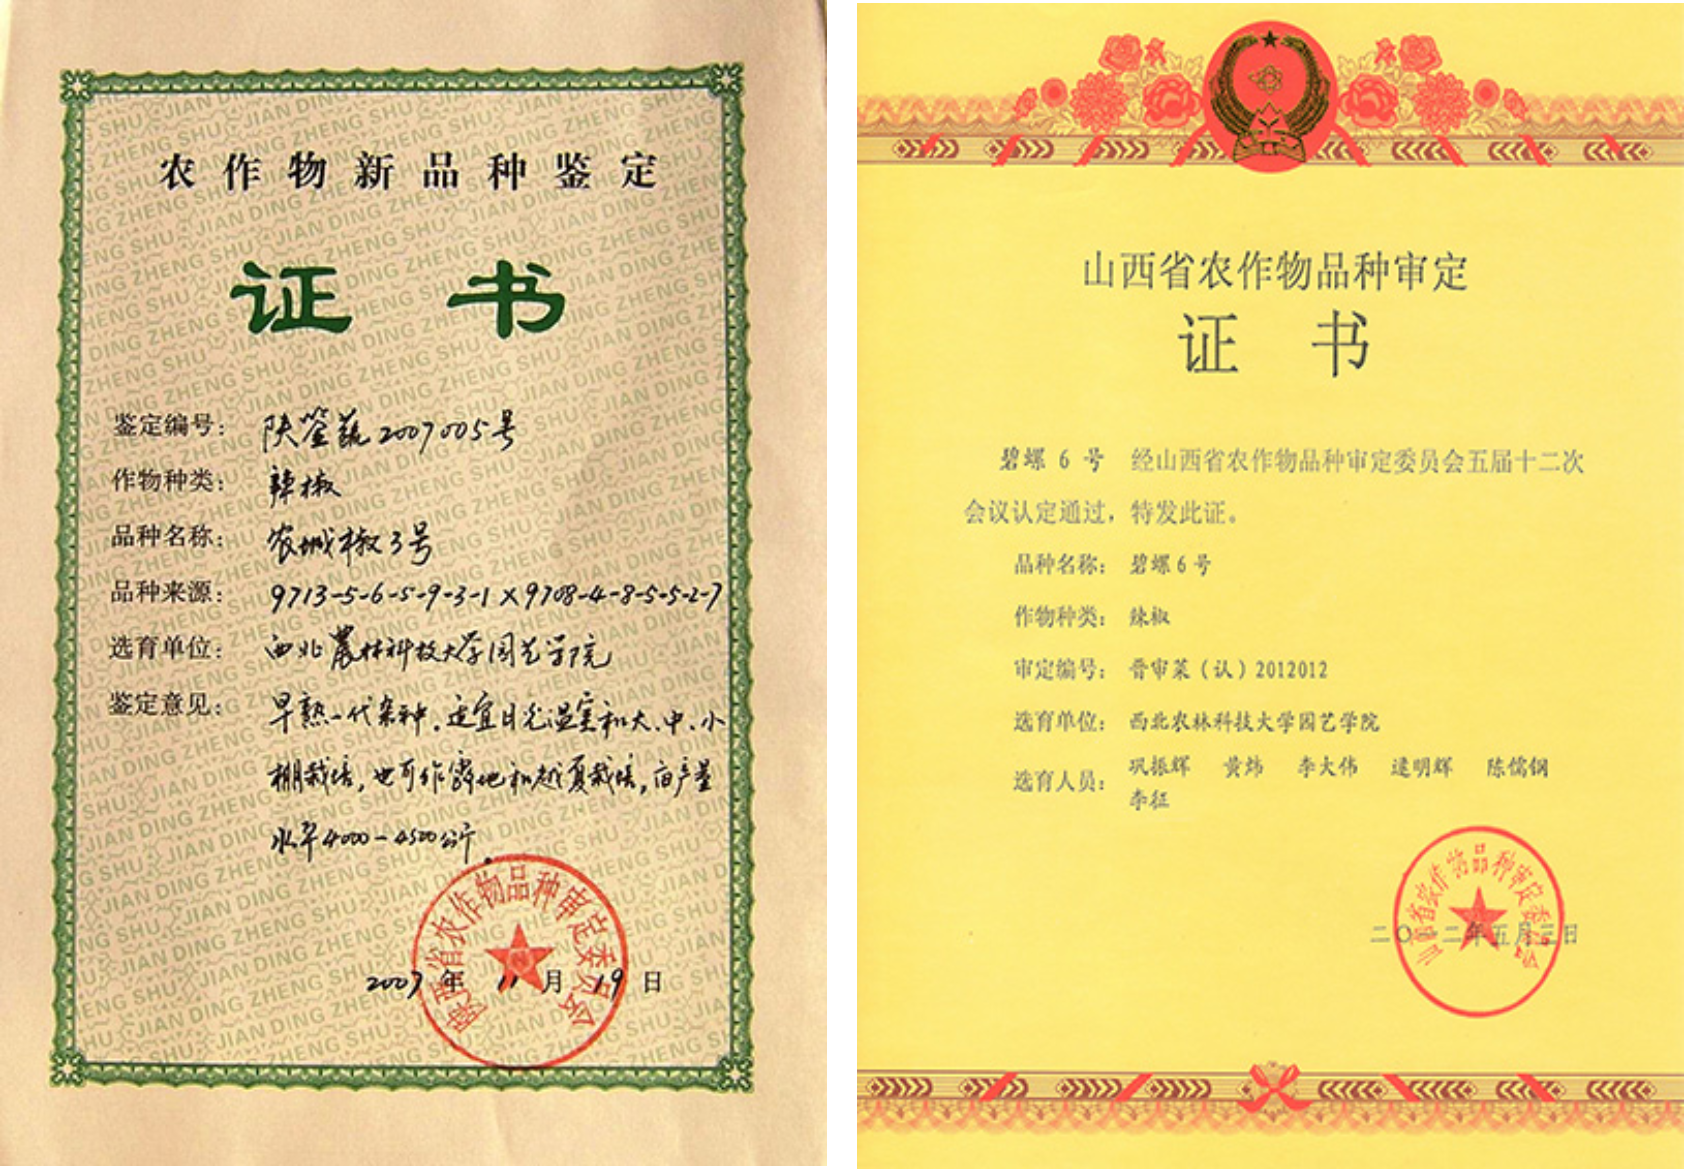 农作物新品种鉴定
证书
鉴定编号：陕鉴蔬2007005号
作物种类：辣椒
品种名称：农城椒3号
品种来源：9713-5-6-5-9-3-1×9708-4-8-5-5-2-7
选育单位：西北農林科技大学园艺学院
鉴定意见：早熟一代杂种，适宜日光温室和大、中、小
棚栽培，也可作露地和越夏栽培，亩产量
水平4000-4500公斤。
陕西省农作物品种审定委员会
2007年11月19日
山西省农作物品种审定
证书
碧螺6号 经山西省农作物品种审定委员会五届十二次
会议认定通过，特发此证。
品种名称：碧螺6号
作物种类：辣椒
审定编号：晋审菜（认）2012012
选育单位：西北农林科技大学园艺学院
选育人员：巩振辉 黄炜 李大伟 逯明辉 陈儒钢
李征
山西省农作物品种审定委员会
二〇一二年五月三日